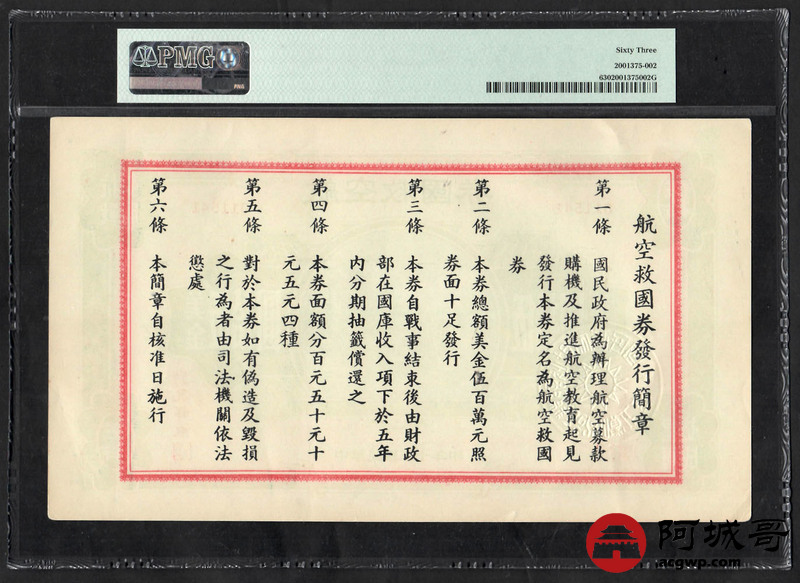 PMG
PMG
Sixty Three
2001375-002
6302001375002G
航空救國券發行簡章
第一條 國民政府為辦理航空募款
購機及推進航空教育起見
發行本券定名為航空救國
券
第二條 本券總額美金伍百萬元照
券面十足發行
第三條 本券自戰事結束後由財政
部在國庫收入項下於五年
內分期抽籤償還之
第四條 本券面額分百元五十元十
元五元四種
第五條 對於本券如有偽造及毀損
之行為者由司法機關依法
懲處
第六條 本簡章自核准日施行
阿城哥
acgwp.com